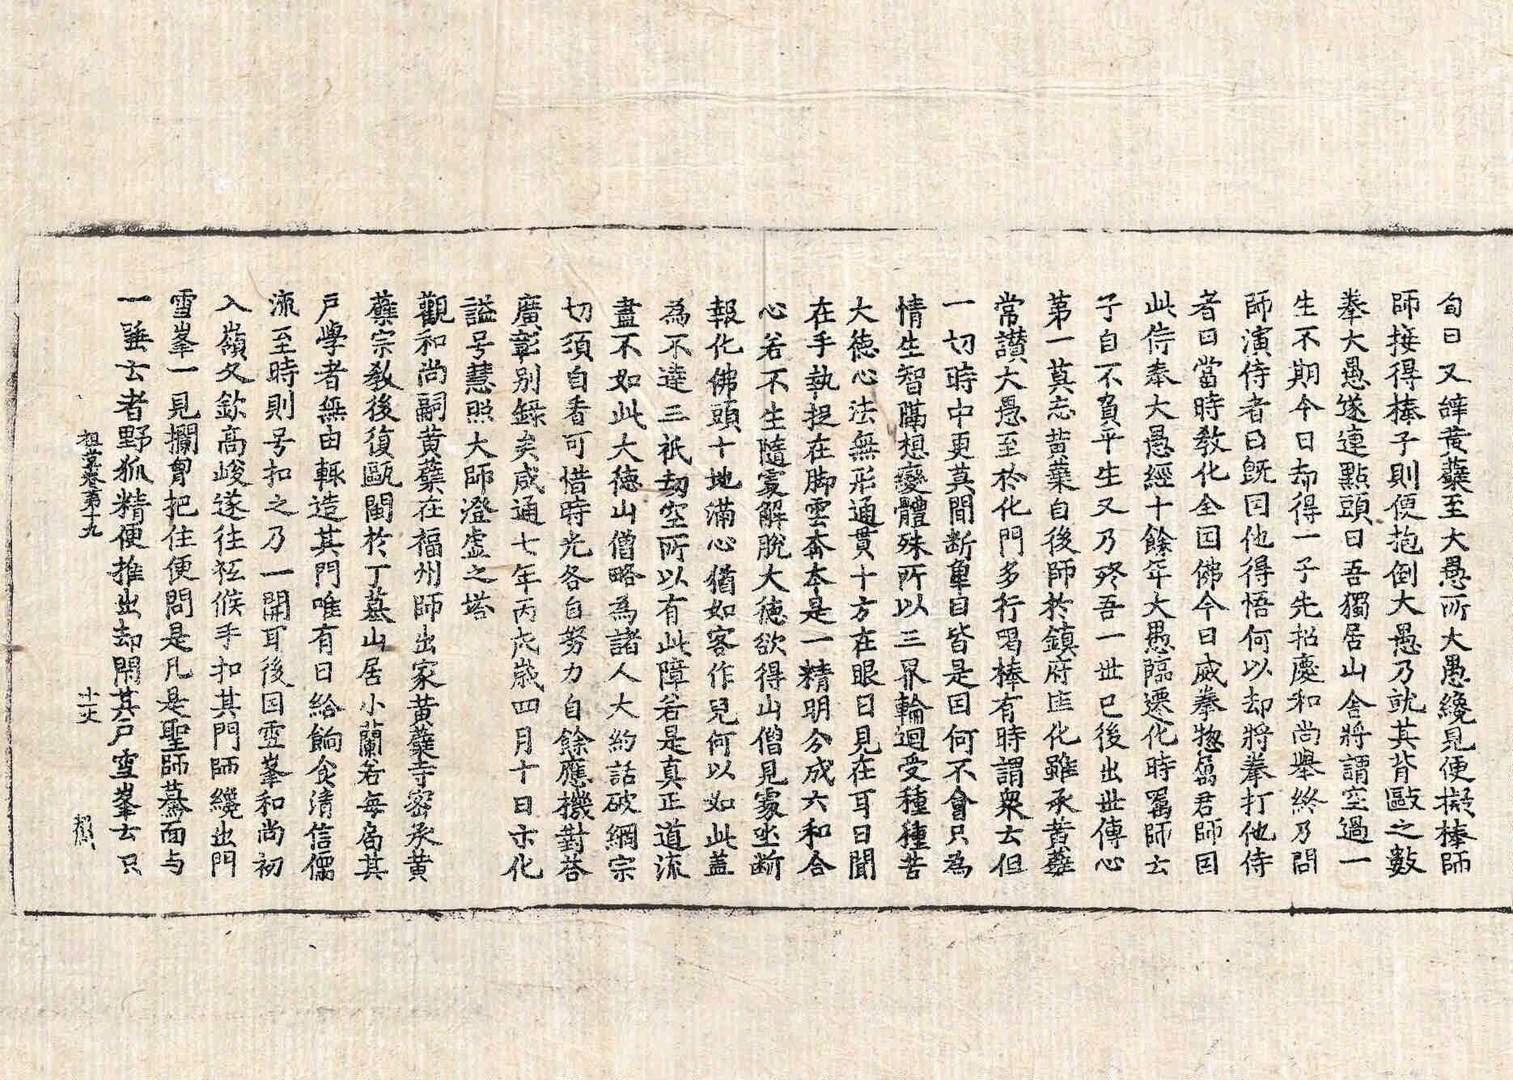 旬日又辝黃蘗至大愚所大愚纔見便擬棒師
師接得棒子則便抱倒大愚乃就其背毆之數
拳大愚遂連點頭曰吾獨居山舍將謂空過一
生不期今日却得一子先招慶和尚擧終乃問
師演侍者曰旣因他得悟何以却將拳打他侍
者曰當時敎化全因佛今日威拳惣属君師因
此侍奉大愚經十餘年大愚臨遷化時囑師云
子自不負平生又乃終吾一世已後出世傳心
第一莫忘黃蘗自後師於鎭府匡化雖承黃蘗
常讃大愚至於化門多行喝棒有時謂衆云但
一切時中更莫間断觸目皆是因何不會只為
情生智隔想變體殊所以三界輪迴受種種苦
大德心法無形通貫十方在眼曰見在耳曰聞
在手執捉在脚雲奔本是一精明分成六和合
心若不生隨處解脫大德欲得山僧見處坐断
報化佛頭十地滿心猶如客作兒何以如此盖
為不達三祇劫空所以有此障若是真正道流
盡不如此大德山僧略為諸人大約話破綱宗
切須自看可惜時光各自努力自餘應機對荅
廣彰別錄矣咸通七年丙戌歲四月十日示化
謚号慧照大師澄虛之塔
觀和尚嗣黃蘗在福州師出家黃蘗寺密承黃
蘗宗敎後復甌閩於丁墓山居小蘭若每扃其
戶學者無由輙造其門唯有日給餉食淸信儒
流至時則号扣之乃一開耳後因雪峯和尚初
入嶺久欽高峻遂往祗候手扣其門師纔出門
雪峯一見攔胷把住便問是凡是聖師驀面与
一唾云者野狐精便推出却閉其戶雪峯云只
祖堂卷第十九
十二丈